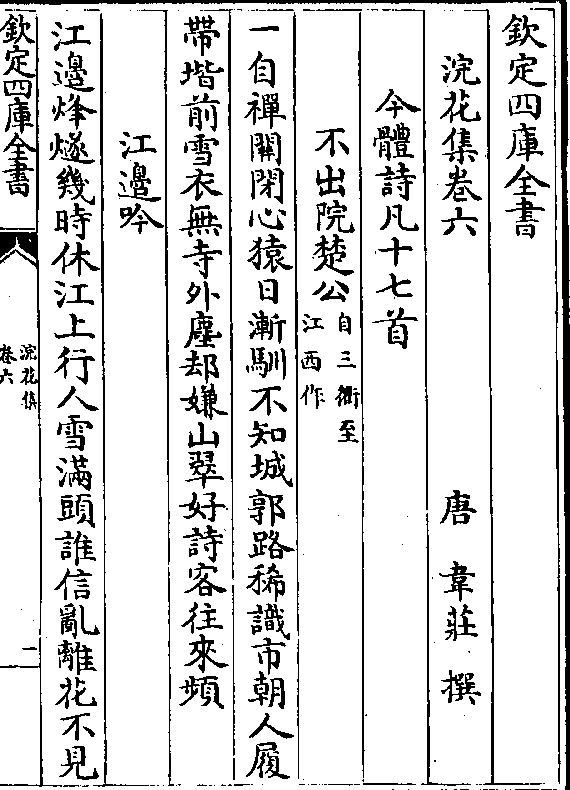 欽定四庫全書
浣花集卷六　唐　韋莊　撰
今體詩凡十七首
不出院楚公
自三衢至
江西作
一自禪關閉心猿日漸馴不知城郭路稀識市朝人履
帶堦前雪衣無寺外塵却嫌山翠好詩客往來頻
江邊吟
江邊烽燧幾時休江上行人雪滿頭誰信亂離花不見
欽定四庫全書
浣花集
卷六
一